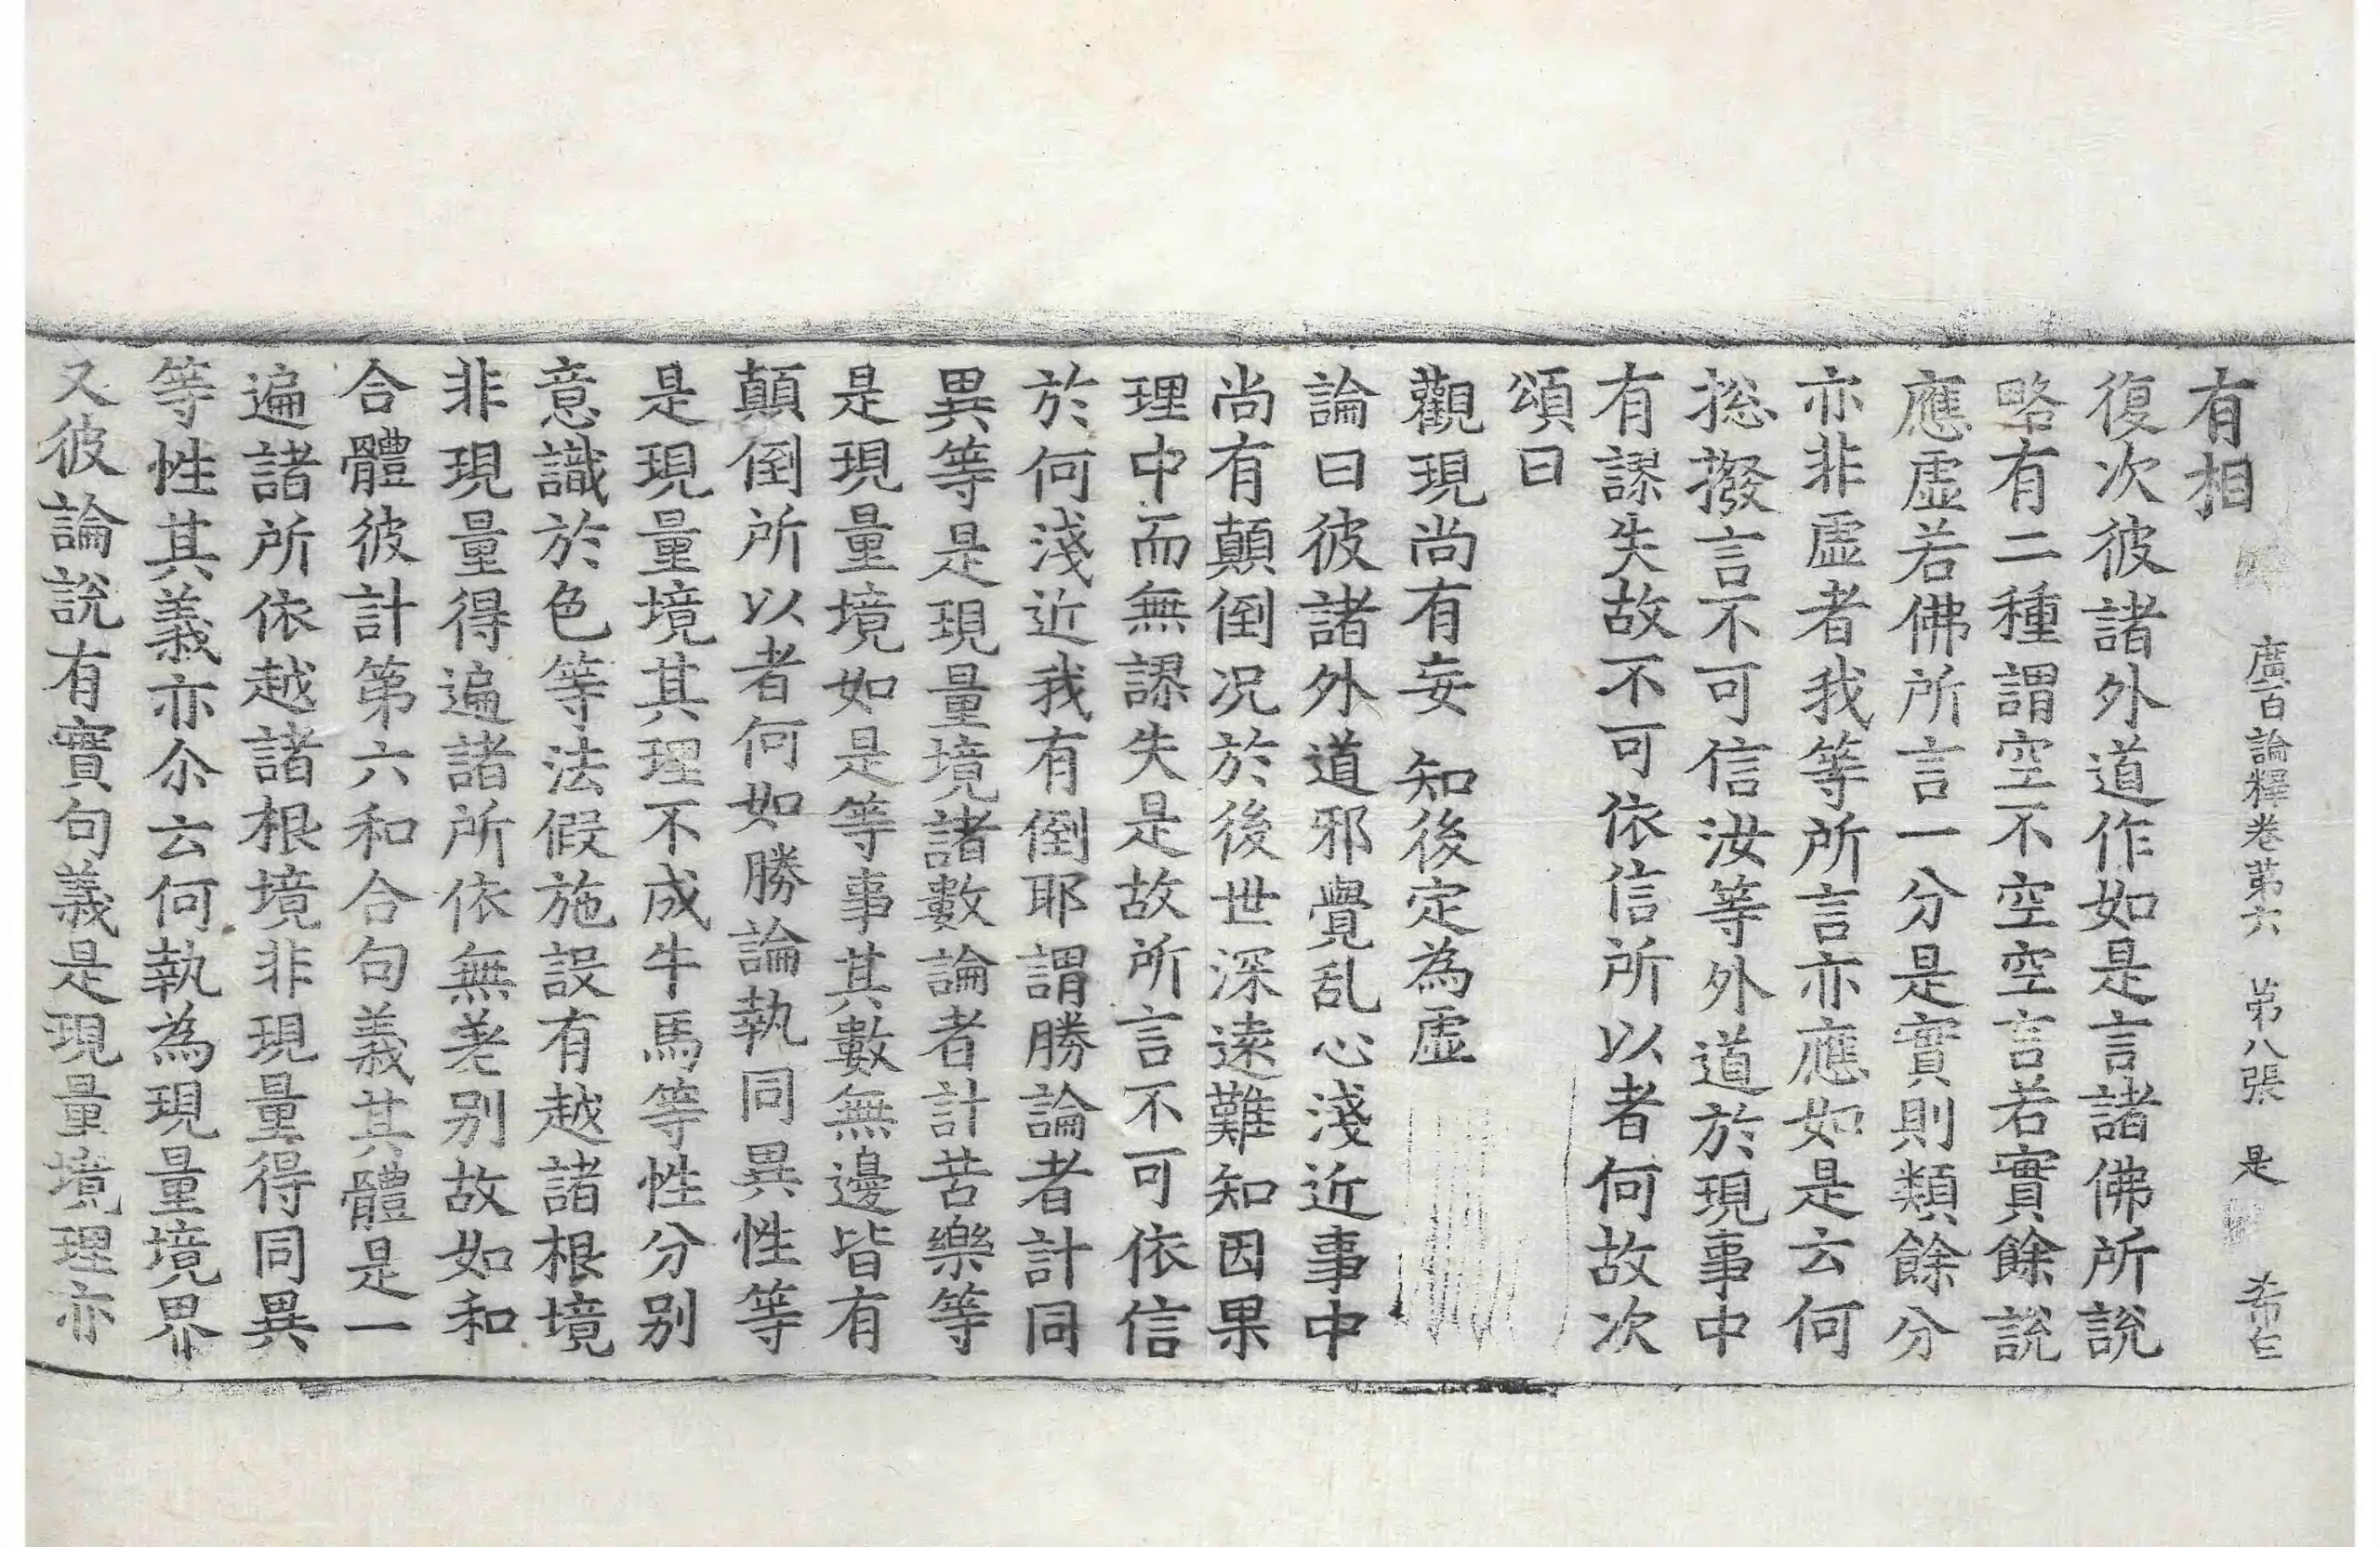 廣百論釋卷第六 第八張 是 希仁
有相
復次彼諸外道作如是言諸佛所說
略有二種謂空不空空言若實餘說
應虛若佛所言一分是實則類餘分
亦非虛者我等所言亦應如是云何
捴撥言不可信汝等外道於現事中
有謬失故不可依信所以者何故次
頌曰
觀現尚有妄 知後定為虛
論曰彼諸外道邪覺乱心淺近事中
尚有顛倒况於後世深遠難知因果
理中而無謬失是故所言不可依信
於何淺近我有倒耶謂勝論者計同
異等是現量境諸數論者計苦樂等
是現量境如是等事其數無邊皆有
顛倒所以者何如勝論執同異性等
是現量境其理不成牛馬等性分別
意識於色等法假施設有越諸根境
非現量得遍諸所依無差別故如和
合體彼計第六和合句義其體是一
遍諸所依越諸根境非現量得同異
等性其義亦尒云何執為現量境界
又彼論說有實句義是現量境理亦